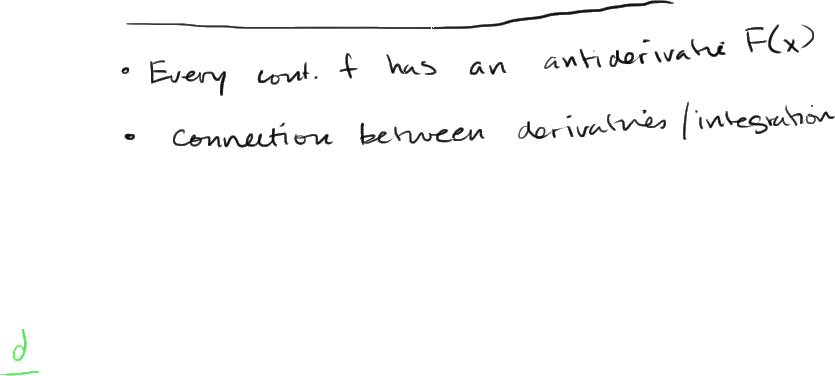 • Every cont. f has an antiderivative F(x)
• connection between derivatives/integration
d